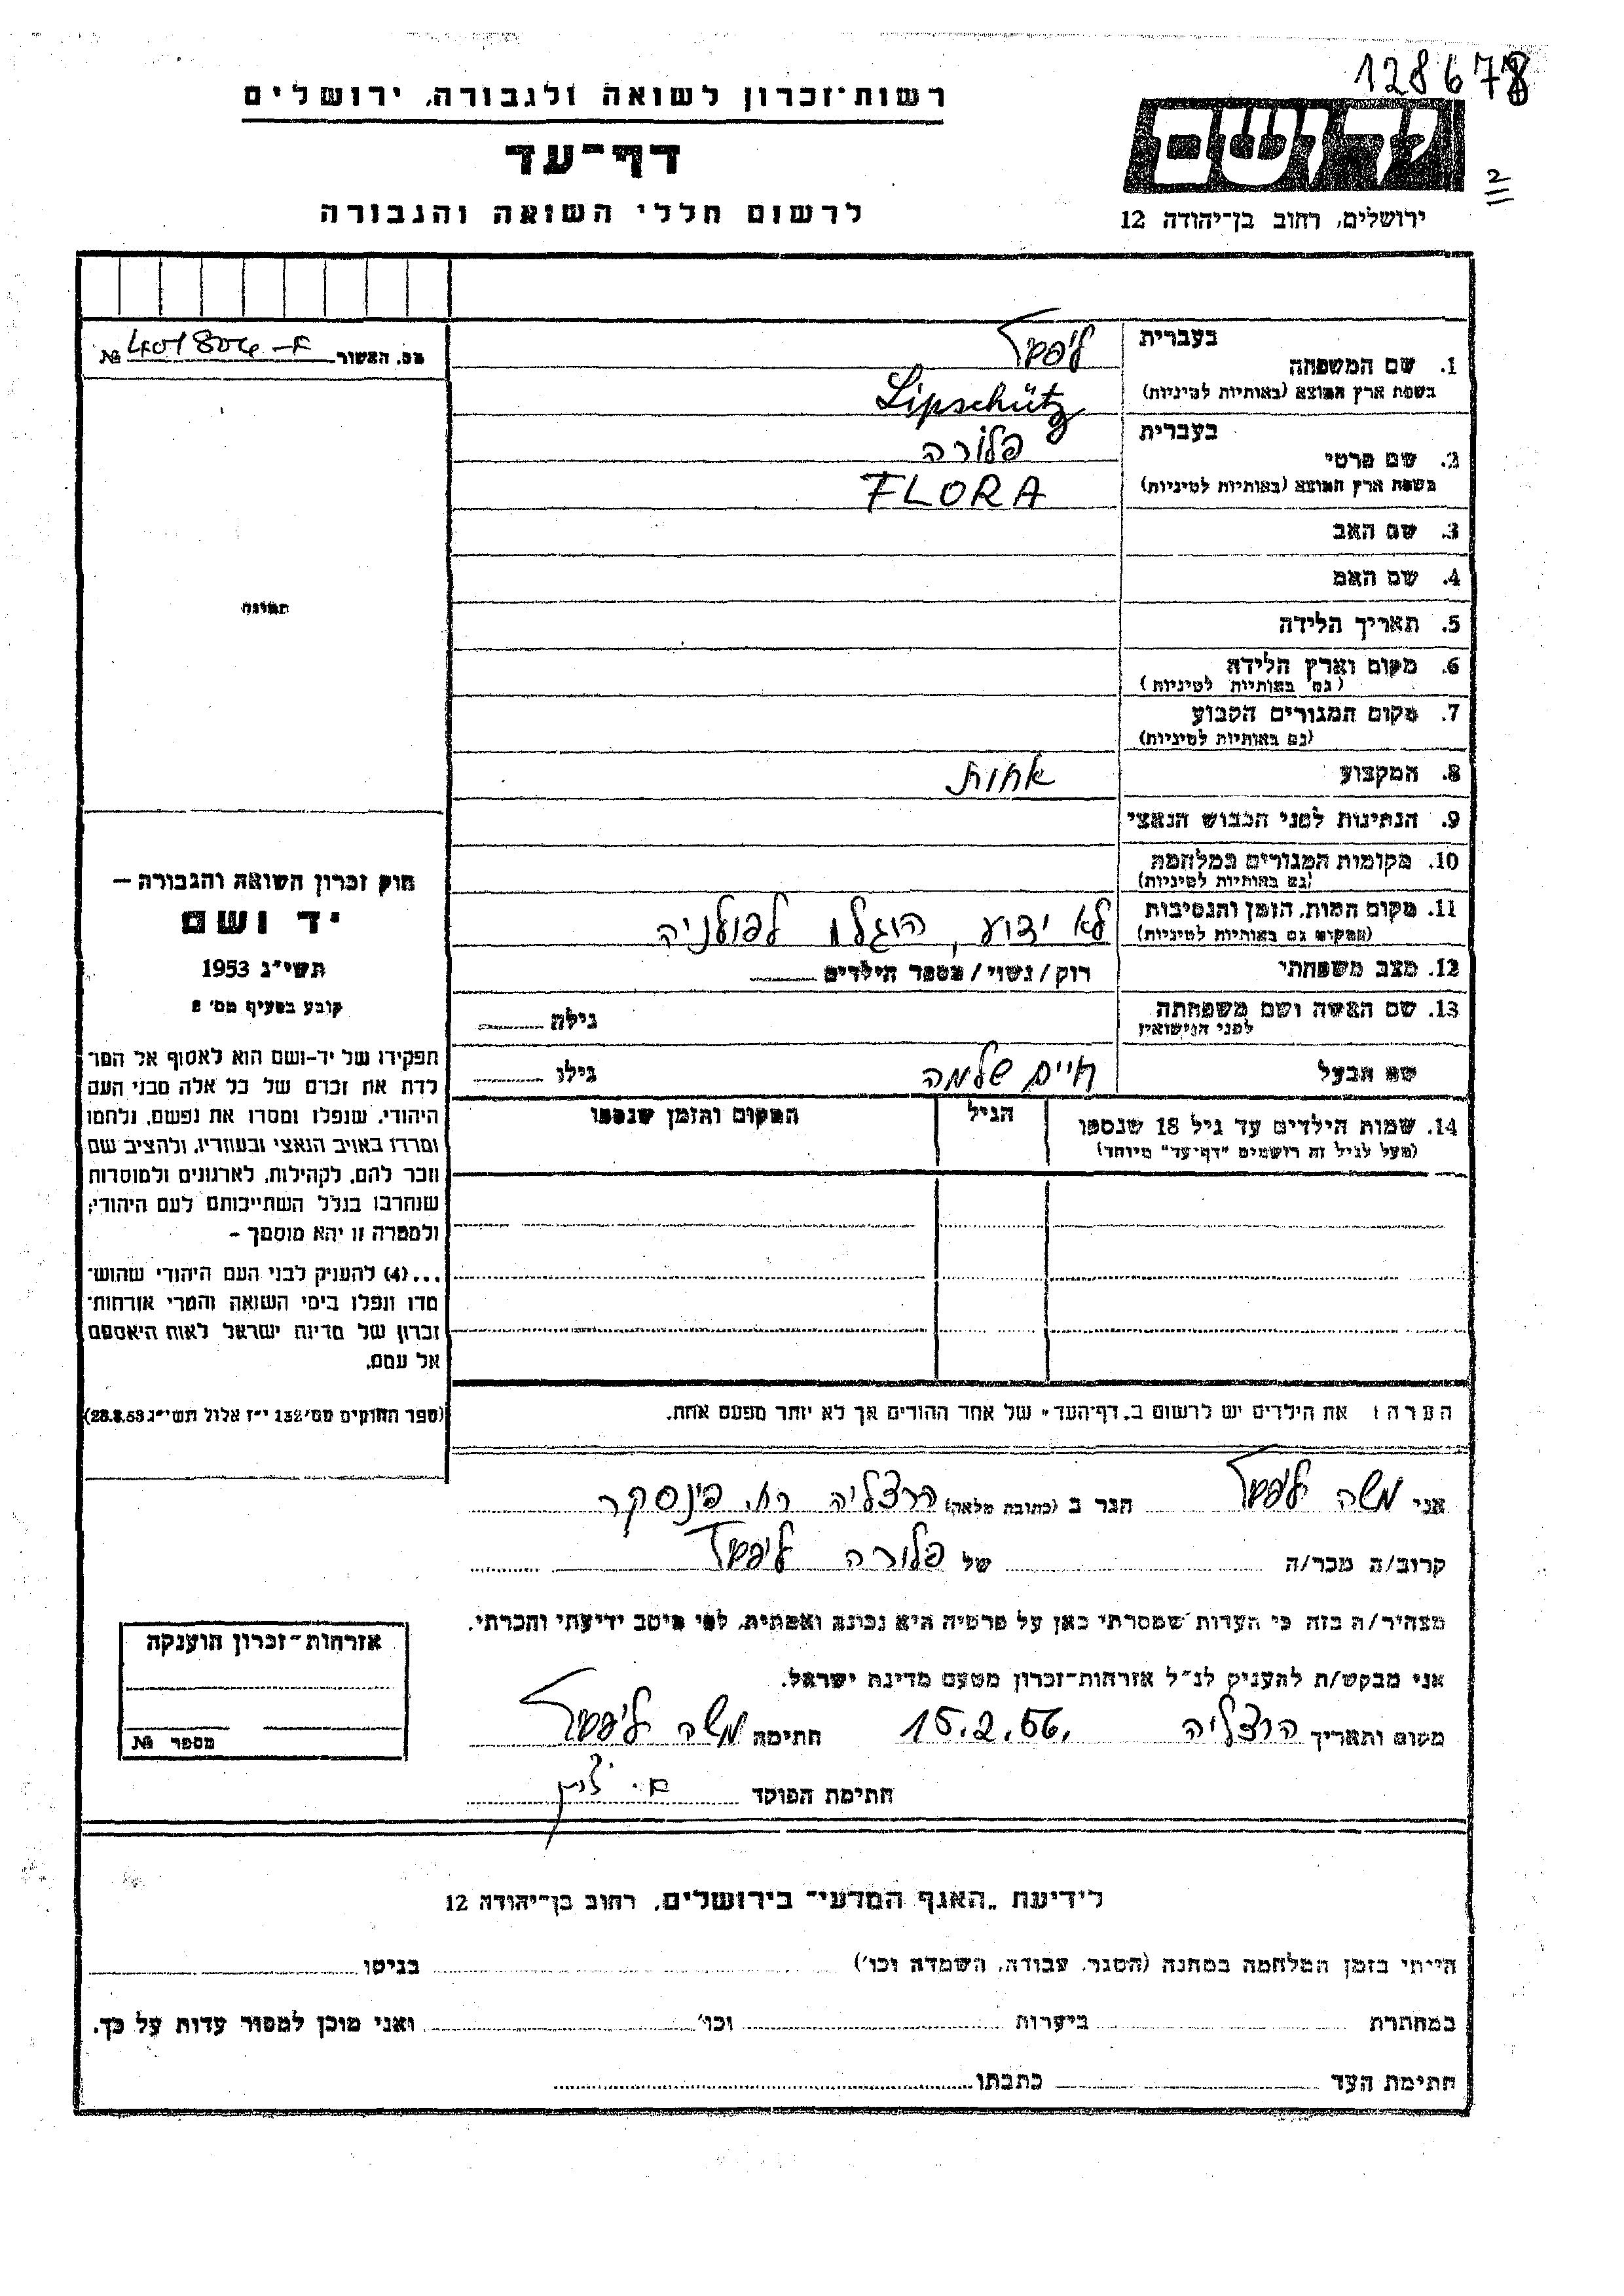 128678
רשות־זכרון לשואה ולגבורה, ירושלים
דף־עד
לרשום חללי השואה והגבורה
יד ושם
2
ירושלים, רחוב בן־יהודה 12
מס. האשור № 401804
תמונה
חוק זכרון השואה והגבורה —
יד ושם
תשי״ג 1953
קובע בסעיף מס׳ 2
תפקידו של יד-ושם הוא לאסוף אל המו־
לדת את זכרם של כל אלה מבני העם
היהודי, שנפלו ומסרו את נפשם, נלחמו
ומרדו באויב הנאצי ובעוזריו, ולהציב שם
וזכר להם, לקהילות, לארגונים ולמוסדות
שנחרבו בגלל השתייכותם לעם היהודי;
ולמטרה זו יהא מוסמך –
...(4) להעניק לבני העם היהודי שהוש־
מדו ונפלו בימי השואה והמרי אזרחות־
זכרון של מדינת ישראל לאות היאספם
אל עמם.
(ספר החוקים מס׳ 132 י״ז אלול תשי״ג 28.8.53)
1. שם המשפחה
בעברית ליפשץ
בשפת ארץ המוצא (באותיות לטיניות) Lipschütz
2. שם פרטי
בעברית פלורה
בשפת ארץ המוצא (באותיות לטיניות) FLORA
3. שם האב
4. שם האם
5. תאריך הלידה
6. מקום וארץ הלידה
(גם באותיות לטיניות)
7. מקום המגורים הקבוע
(גם באותיות לטיניות)
8. המקצוע אחות
9. הנתינות לפני הכבוש הנאצי
10. מקומות המגורים במלחמה
(גם באותיות לטיניות)
11. מקום המות, הזמן והנסיבות לא ידוע, הוגלו לפולניה
(המקום גם באותיות לטיניות)
12. מצב משפחתי רוק/נשוי/מספר הילדים
13. שם האשה ושם משפחתה גילה
לפני הנישואין
שם הבעל חיים שלמה גילו
14. שמות הילדים עד גיל 18 שנספו הגיל המקום והזמן שנספו
(מעל לגיל זה רושמים "דף־עד" מיוחד)
הערה: את הילדים יש לרשום ב„דף־העד״ של אחד ההורים אך לא יותר מפעם אחת.
אני משה ליפשץ הגר ב (כתובת מלאה) הרצליה רח. פינסקר
קרוב/ה מכר/ה של פלורה ליפשץ
מצהיר/ה בזה כי העדות שמסרתי כאן על פרטיה היא נכונה ואמתית, לפי מיטב ידיעתי והכרתי.
אני מבקש/ת להעניק לנ״ל אזרחות־זכרון מטעם מדינת ישראל.
מקום ותאריך הרצליה 15.2.56. חתימה משה ליפשץ
חתימת הפוקד
אזרחות־זכרון הוענקה
מספר №
לידיעת „האגף המדעי״ בירושלים, רחוב בן־יהודה 12
הייתי בזמן המלחמה במחנה (הסגר, עבודה, השמדה וכו׳) בגיטו
במחתרת ביערות וכו׳ ואני מוכן למסור עדות על כך.
חתימת העד כתבתו